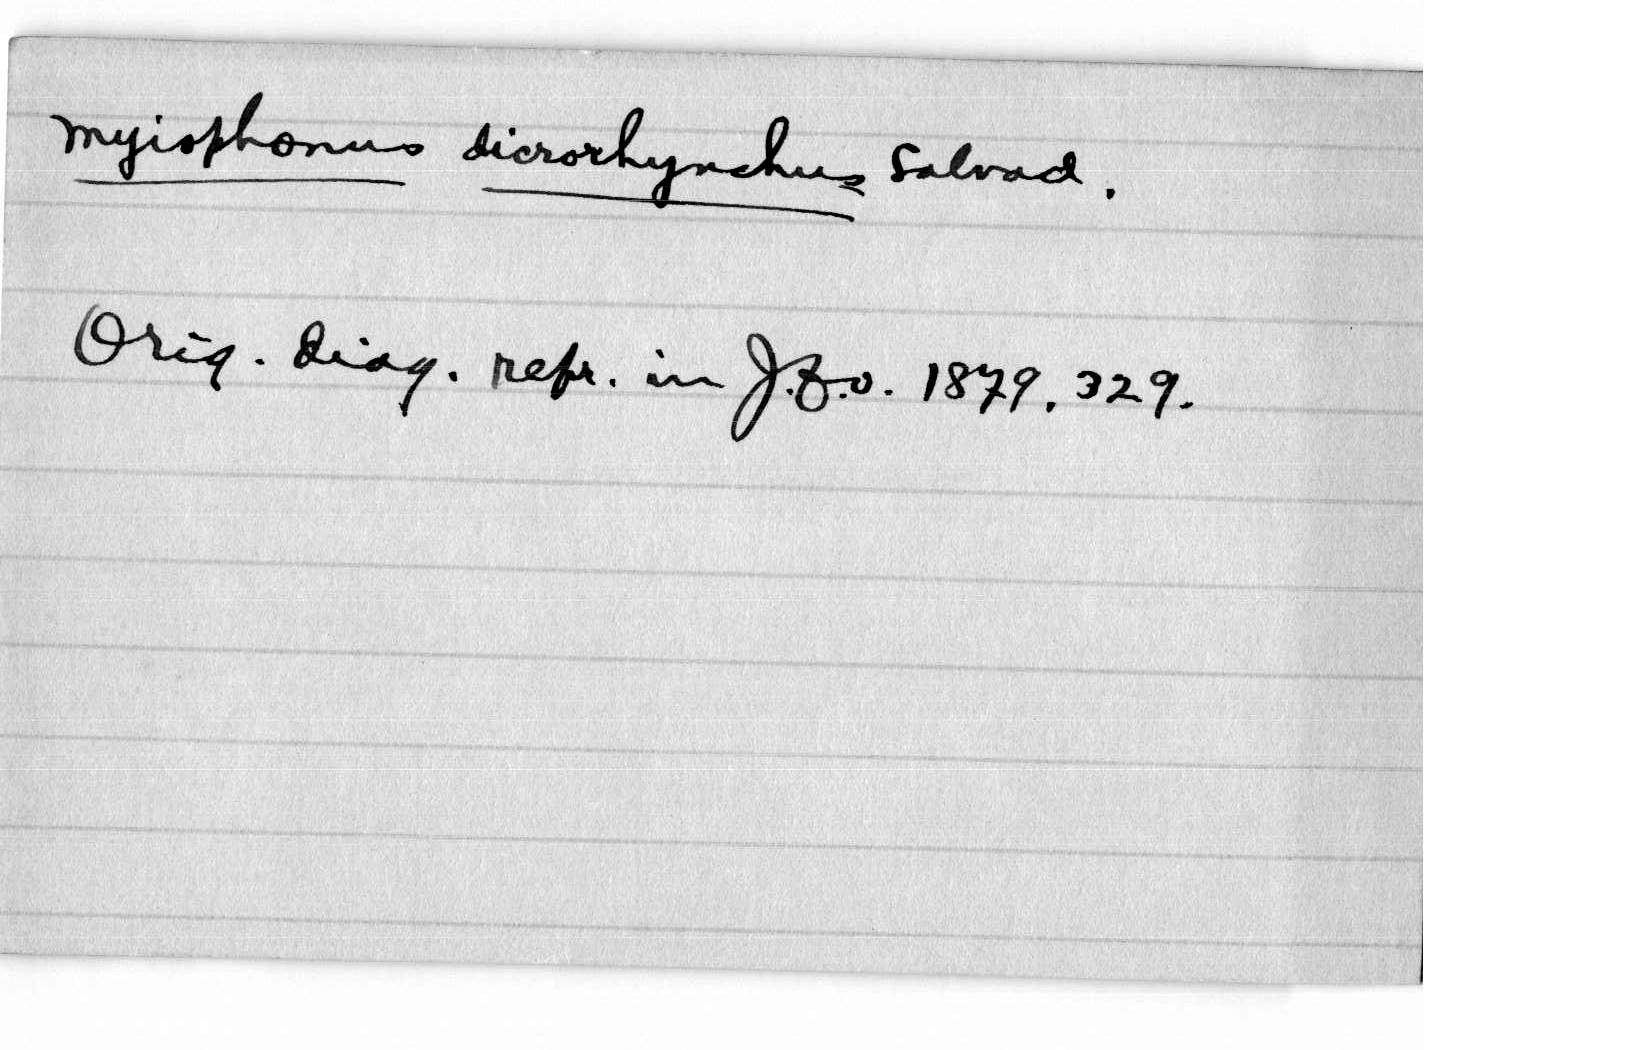 Myiophonus dicrorhynchus Salvad.
Orig. diag. repr. in J.f.O. 1879, 329.